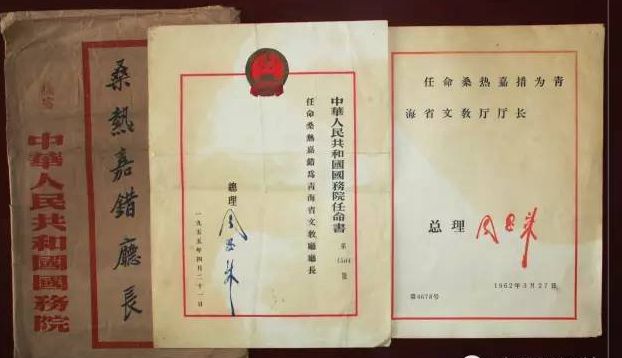 桑熱嘉錯廳長
中華人民共和國國務院
中華人民共和國國務院任命書
第1504號
任命桑熱嘉錯爲青海省文教廳廳長
總理 周恩来
一九五五年四月二十一日
任命桑热嘉措为青
海省文教厅厅长
总理 周恩来
1962年3月27日
第4678号